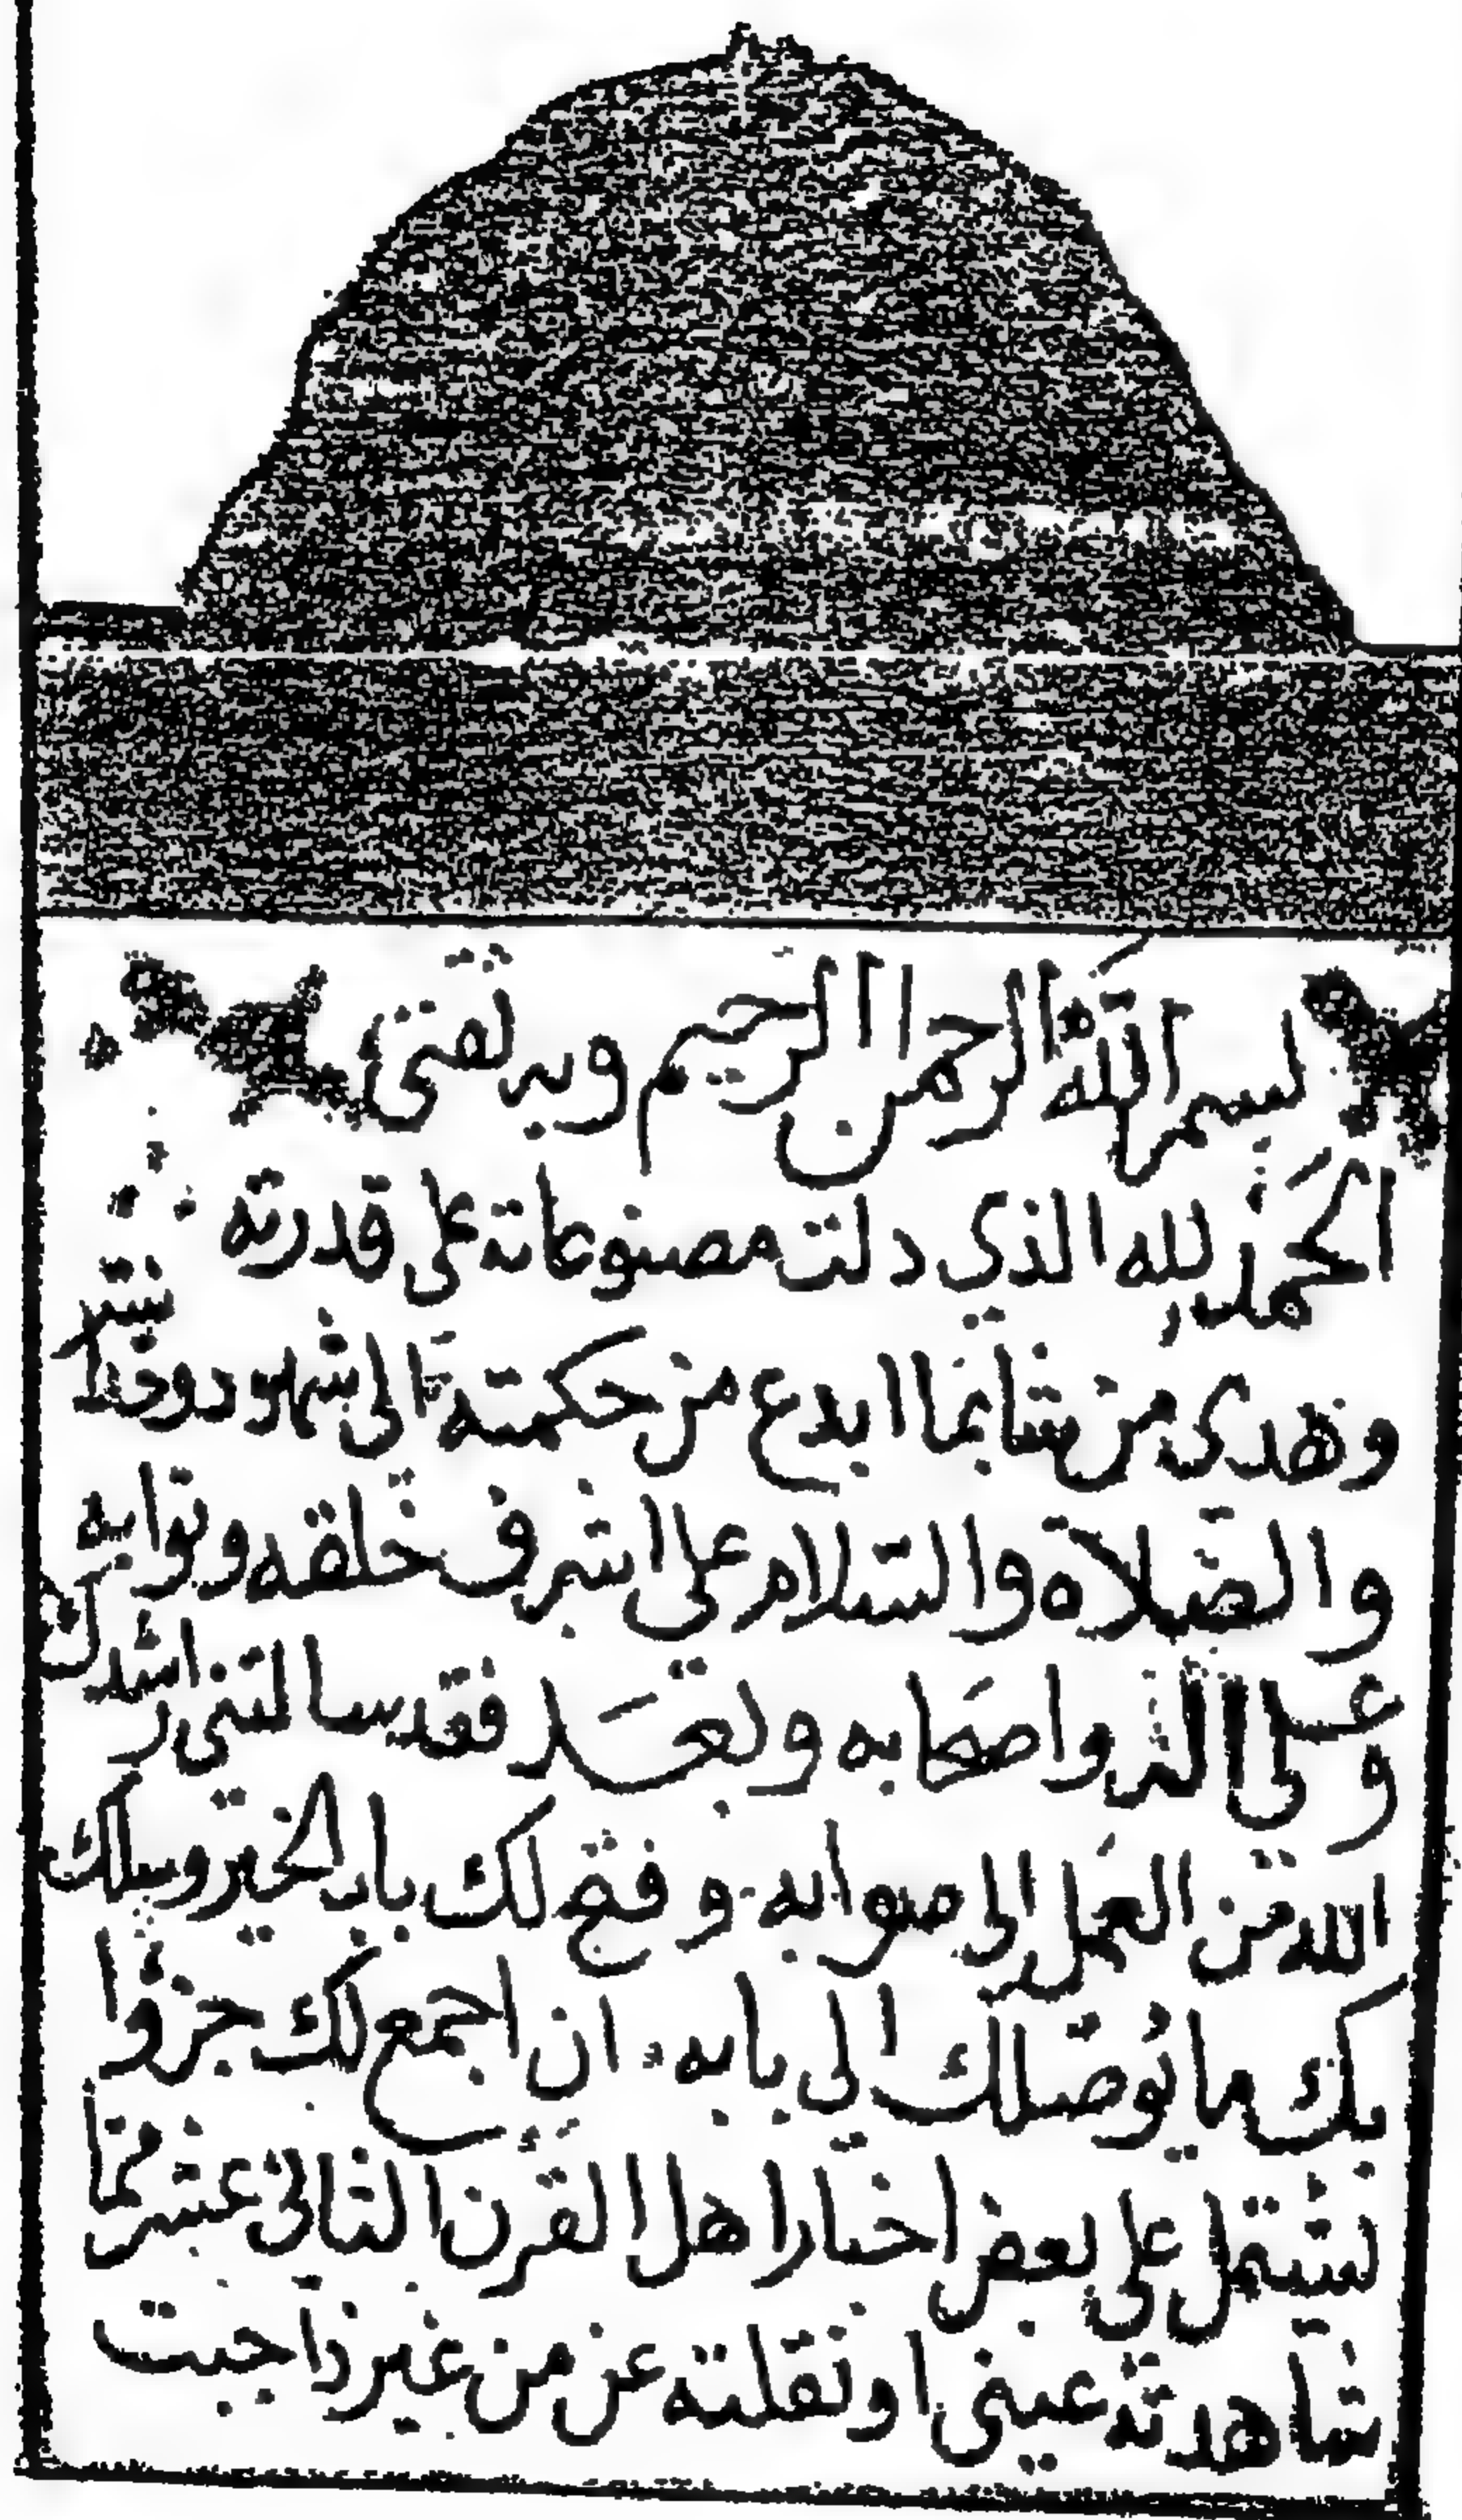 بسم الله الرحمن الرحيم وبه ثقتي
الحمد لله الذي دلت مصنوعاته على قدرته
وهدى من شا بما ابدع من حكمته الى شهود وحدا
والصلاة والسلام على اشرف خلقه ونوابه
وعلى اله واصحابه وبعد فقد سالتني ارشدك
الله من العمل الى صوابه وفتح لك باب الخير وسلك
بك ما يوصلك الى بابه ان اجمع لك جزوا
يشتمل على بعض اخبار اهل القرن الثاني عشر مما
شاهدته عيني او نقلته عن من غير ذاجيت